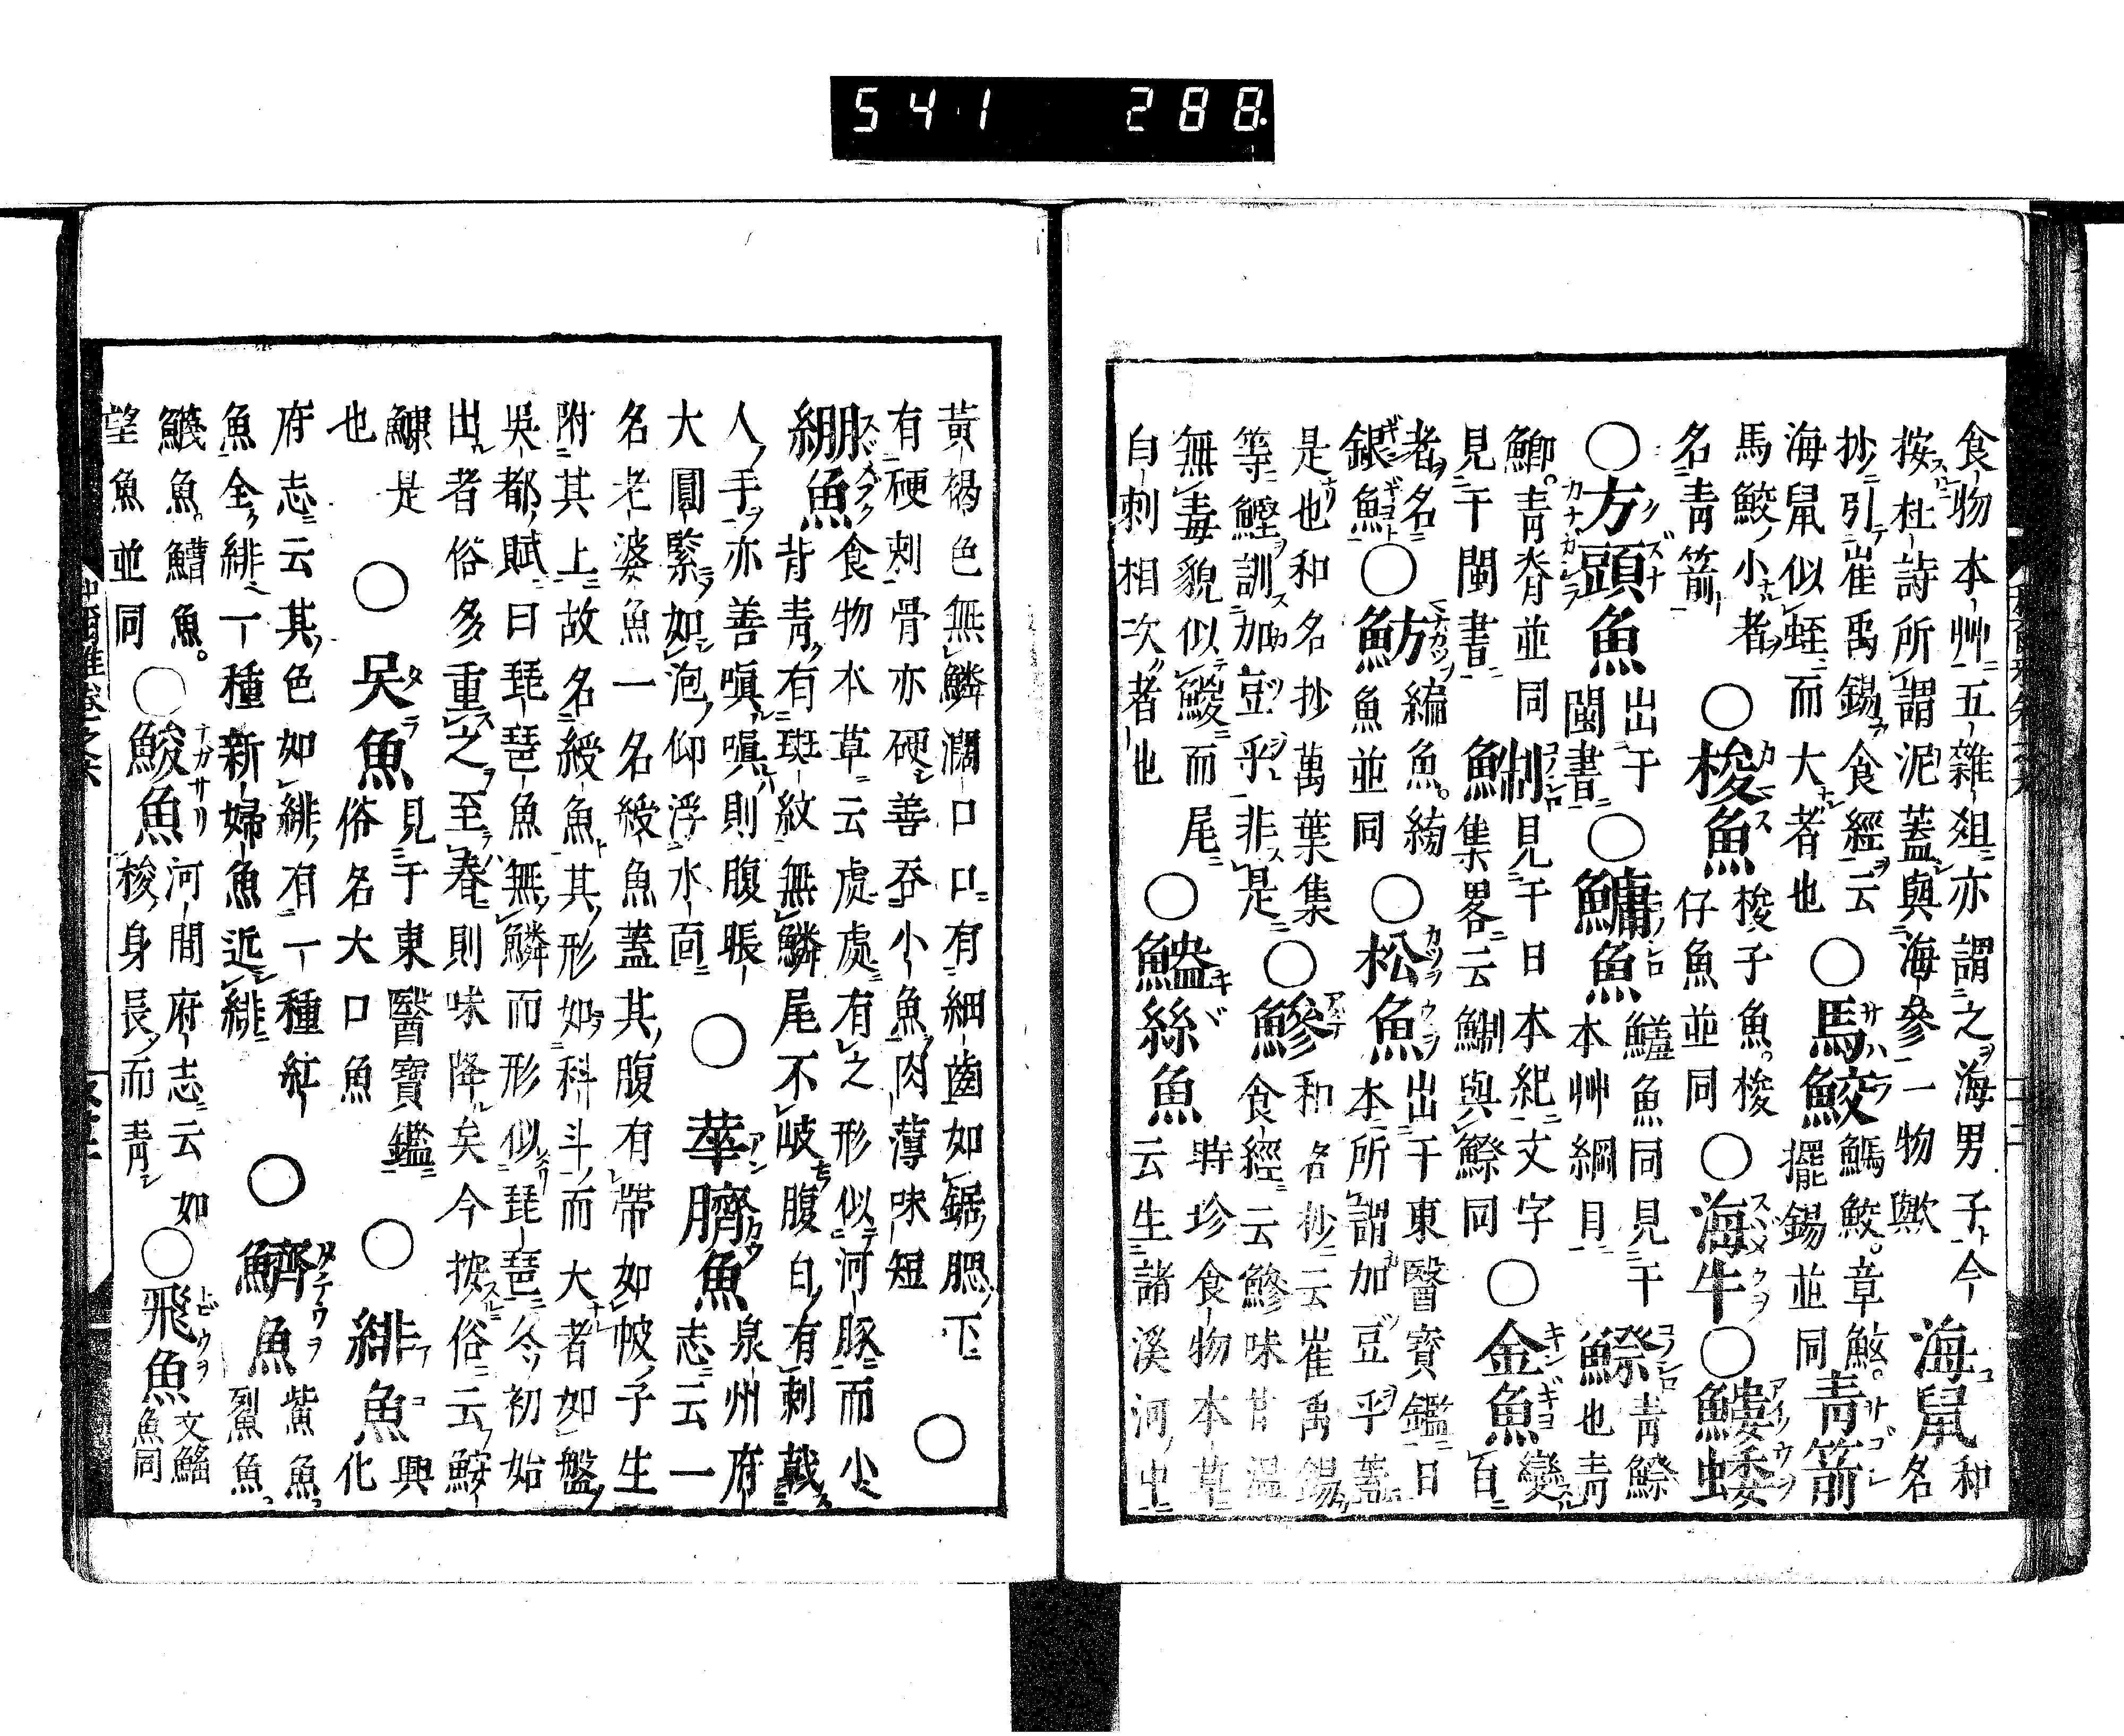 541 288
食物本艸五雜俎亦謂之海男子今
按杜詩所謂泥蓋與海參一物歟 海鼠 和名
抄引崔禹錫食經云 ○馬鮫 䲕鮫。章𩶤。青箭
海鼠似蛭而大者也 擺錫並同
馬鮫小者 ○梭魚 梭子魚。梭 ○海牛 ○鱫
名青箭 仔魚並同
○方頭魚 出于 ○鱅魚 鱃魚同見于 鰶 青鰶
閩書 本艸綱目 也青
鯽。青脊並同 鯯 見于日本紀文字 ○金魚 變
見于閩書 集畧云鯯與鰶同 百
者名 ○魴 鯿魚。 ○松魚 出于東醫寶鑑日
銀魚 魚並同 本所謂加豆乎蓋
是也和名抄萬葉集 ○鯵 和名抄云崔禹錫
等鰹訓加豆乎非是 食經云鯵味甘溫
無毒貌似鯼而尾 ○鰪絲魚 時珍食物本草
白刺相次者也 云生諸溪河中
黃褐色無鱗濶口口有細齒如鋸腮下
有硬刺骨亦硬善吞小魚肉薄味短 ○
繃魚 食物本草云處處有之形似河豚而小
背靑有斑紋無鱗尾不岐腹白有刺戟
人手亦善嗔嗔則腹脹 ○華臍魚 泉州府
大圓緊如泡仰浮水面 志云一
名老婆魚一名綬魚蓋其腹有帶如帔子生
附其上故名綬魚其形如科斗而大者如盤
吳都賦曰琵琶魚無鱗而形似琵琶今初始
出者俗多重之至春則味降矣今按俗云鮟
鱇是 ○吴魚 見于東醫寶鑑 ○緋魚 興
也 俗名大口魚 化
府志云其色如緋有一種紅
魚全緋一種新婦魚近緋 ○鱭魚 鮆魚。
鱴魚。鰽魚。 鮤魚。
望魚並同 ○鮻魚 河間府志云如 ○飛魚 文鰩
梭身長而靑 魚同